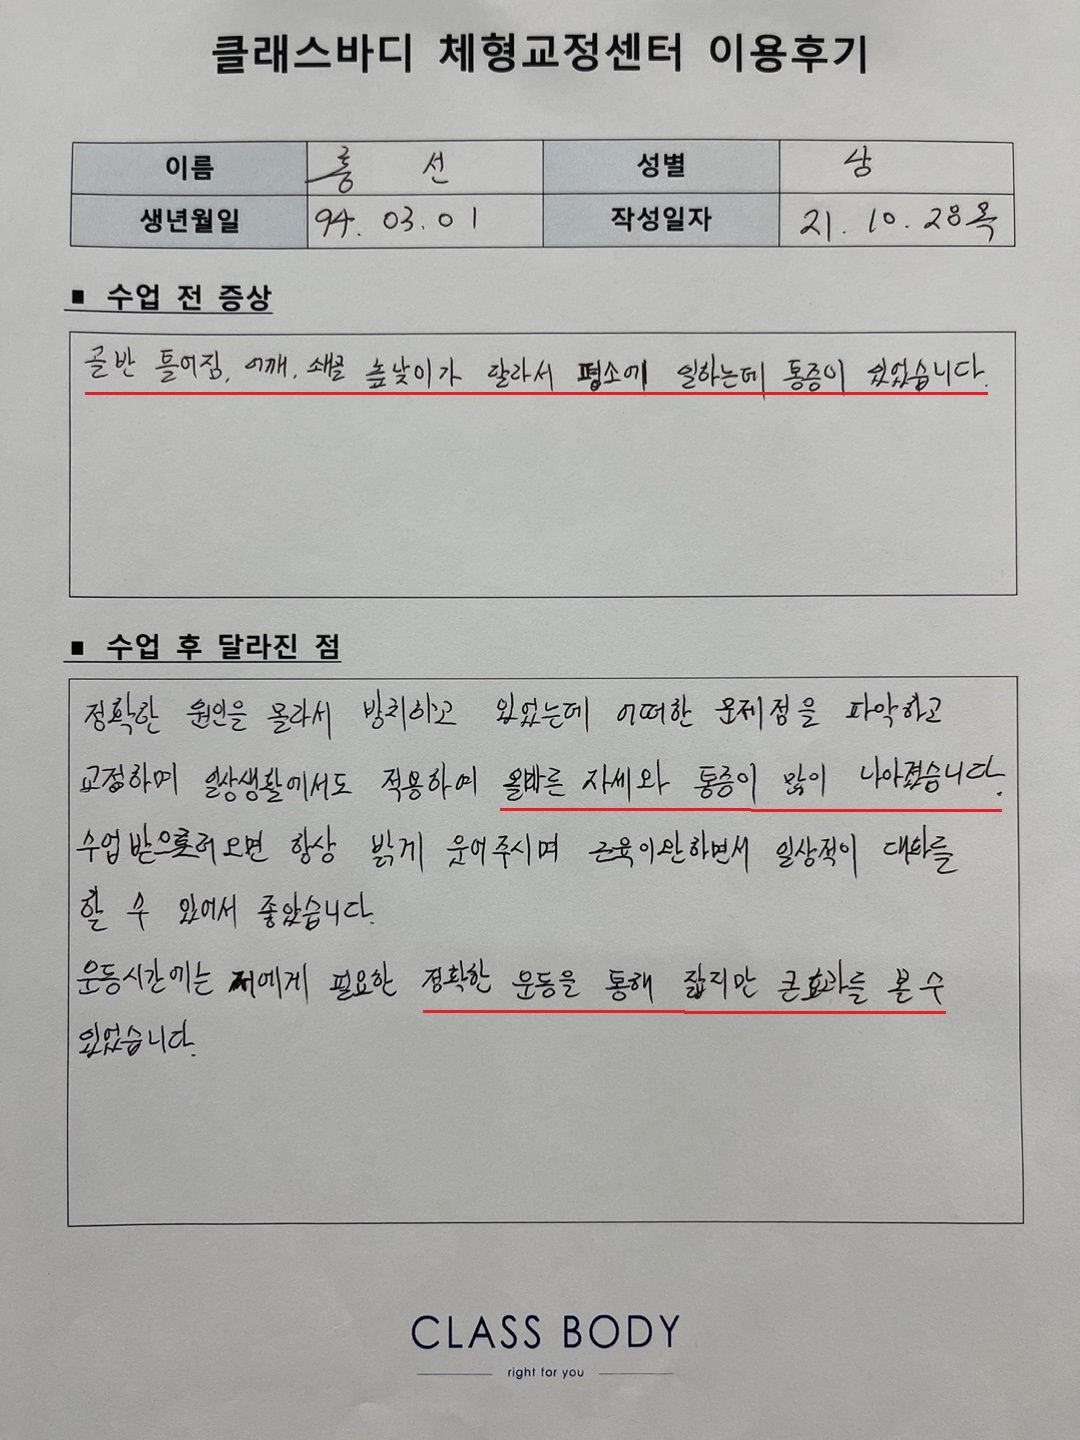 클래스바디 체형교정센터 이용후기
이름 홍 선 성별 남
생년월일 94. 03. 01 작성일자 21. 10. 28 목
■ 수업 전 증상
골반 틀어짐, 어깨, 쇄골 높낮이가 달라서 평소에 일하는데 통증이 있었습니다.
■ 수업 후 달라진 점
정확한 원인을 몰라서 방치하고 있었는데 어떠한 문제점을 파악하고
교정하며 일상생활에서도 적용하여 올바른 자세와 통증이 많이 나아졌습니다.
수업 받으러 오면 항상 밝게 웃어주시며 근육이완하면서 일상적이 대화를
할 수 있어서 좋았습니다.
운동시간에는 저에게 필요한 정확한 운동을 통해 짧지만 큰효과를 본 수
있었습니다.
CLASS BODY
right for you